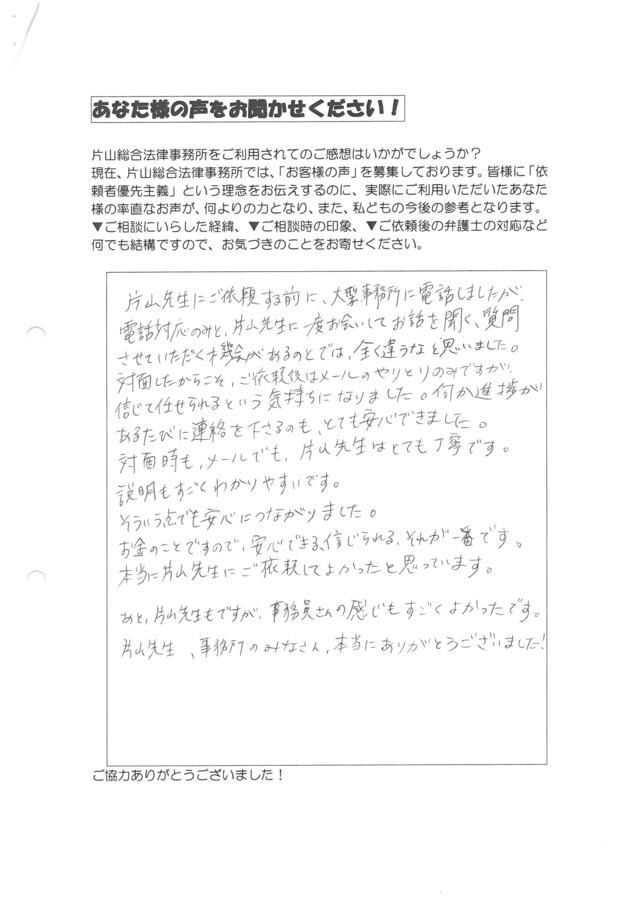 あなた様の声をお聞かせください！
片山総合法律事務所をご利用されてのご感想はいかがでしょうか？
現在、片山総合法律事務所では、「お客様の声」を募集しております。皆様に「依
頼者優先主義」という理念をお伝えするのに、実際にご利用いただいたあなた
様の率直なお声が、何よりの力となり、また、私どもの今後の参考となります。
▼ご相談にいらした経緯、▼ご相談時の印象、▼ご依頼後の弁護士の対応など
何でも結構ですので、お気づきのことをお寄せください。
片山先生にご依頼する前に、大型事務所に電話しましたが、
電話対応のみと、片山先生に一度お会いしてお話を聞く、質問
させていただく機会があるのとでは、全く違うなと思いました。
対面したからこそ、ご依頼後はメールのやりとりのみですが、
信じて任せられるという気持ちになりました。何か進捗が
あるたびに連絡を下さるのも、とても安心できました。
対面時も、メールでも、片山先生はとても丁寧です。
説明もすごくわかりやすいです。
そういう点でも安心につながりました。
お金のことですので、安心できる、信じられる、それが一番です。
本当に片山先生にご依頼してよかったと思っています。
あと、片山先生もですが、事務員さんの感じもすごくよかったです。
片山先生、事務所のみなさん、本当にありがとうございました！
ご協力ありがとうございました！